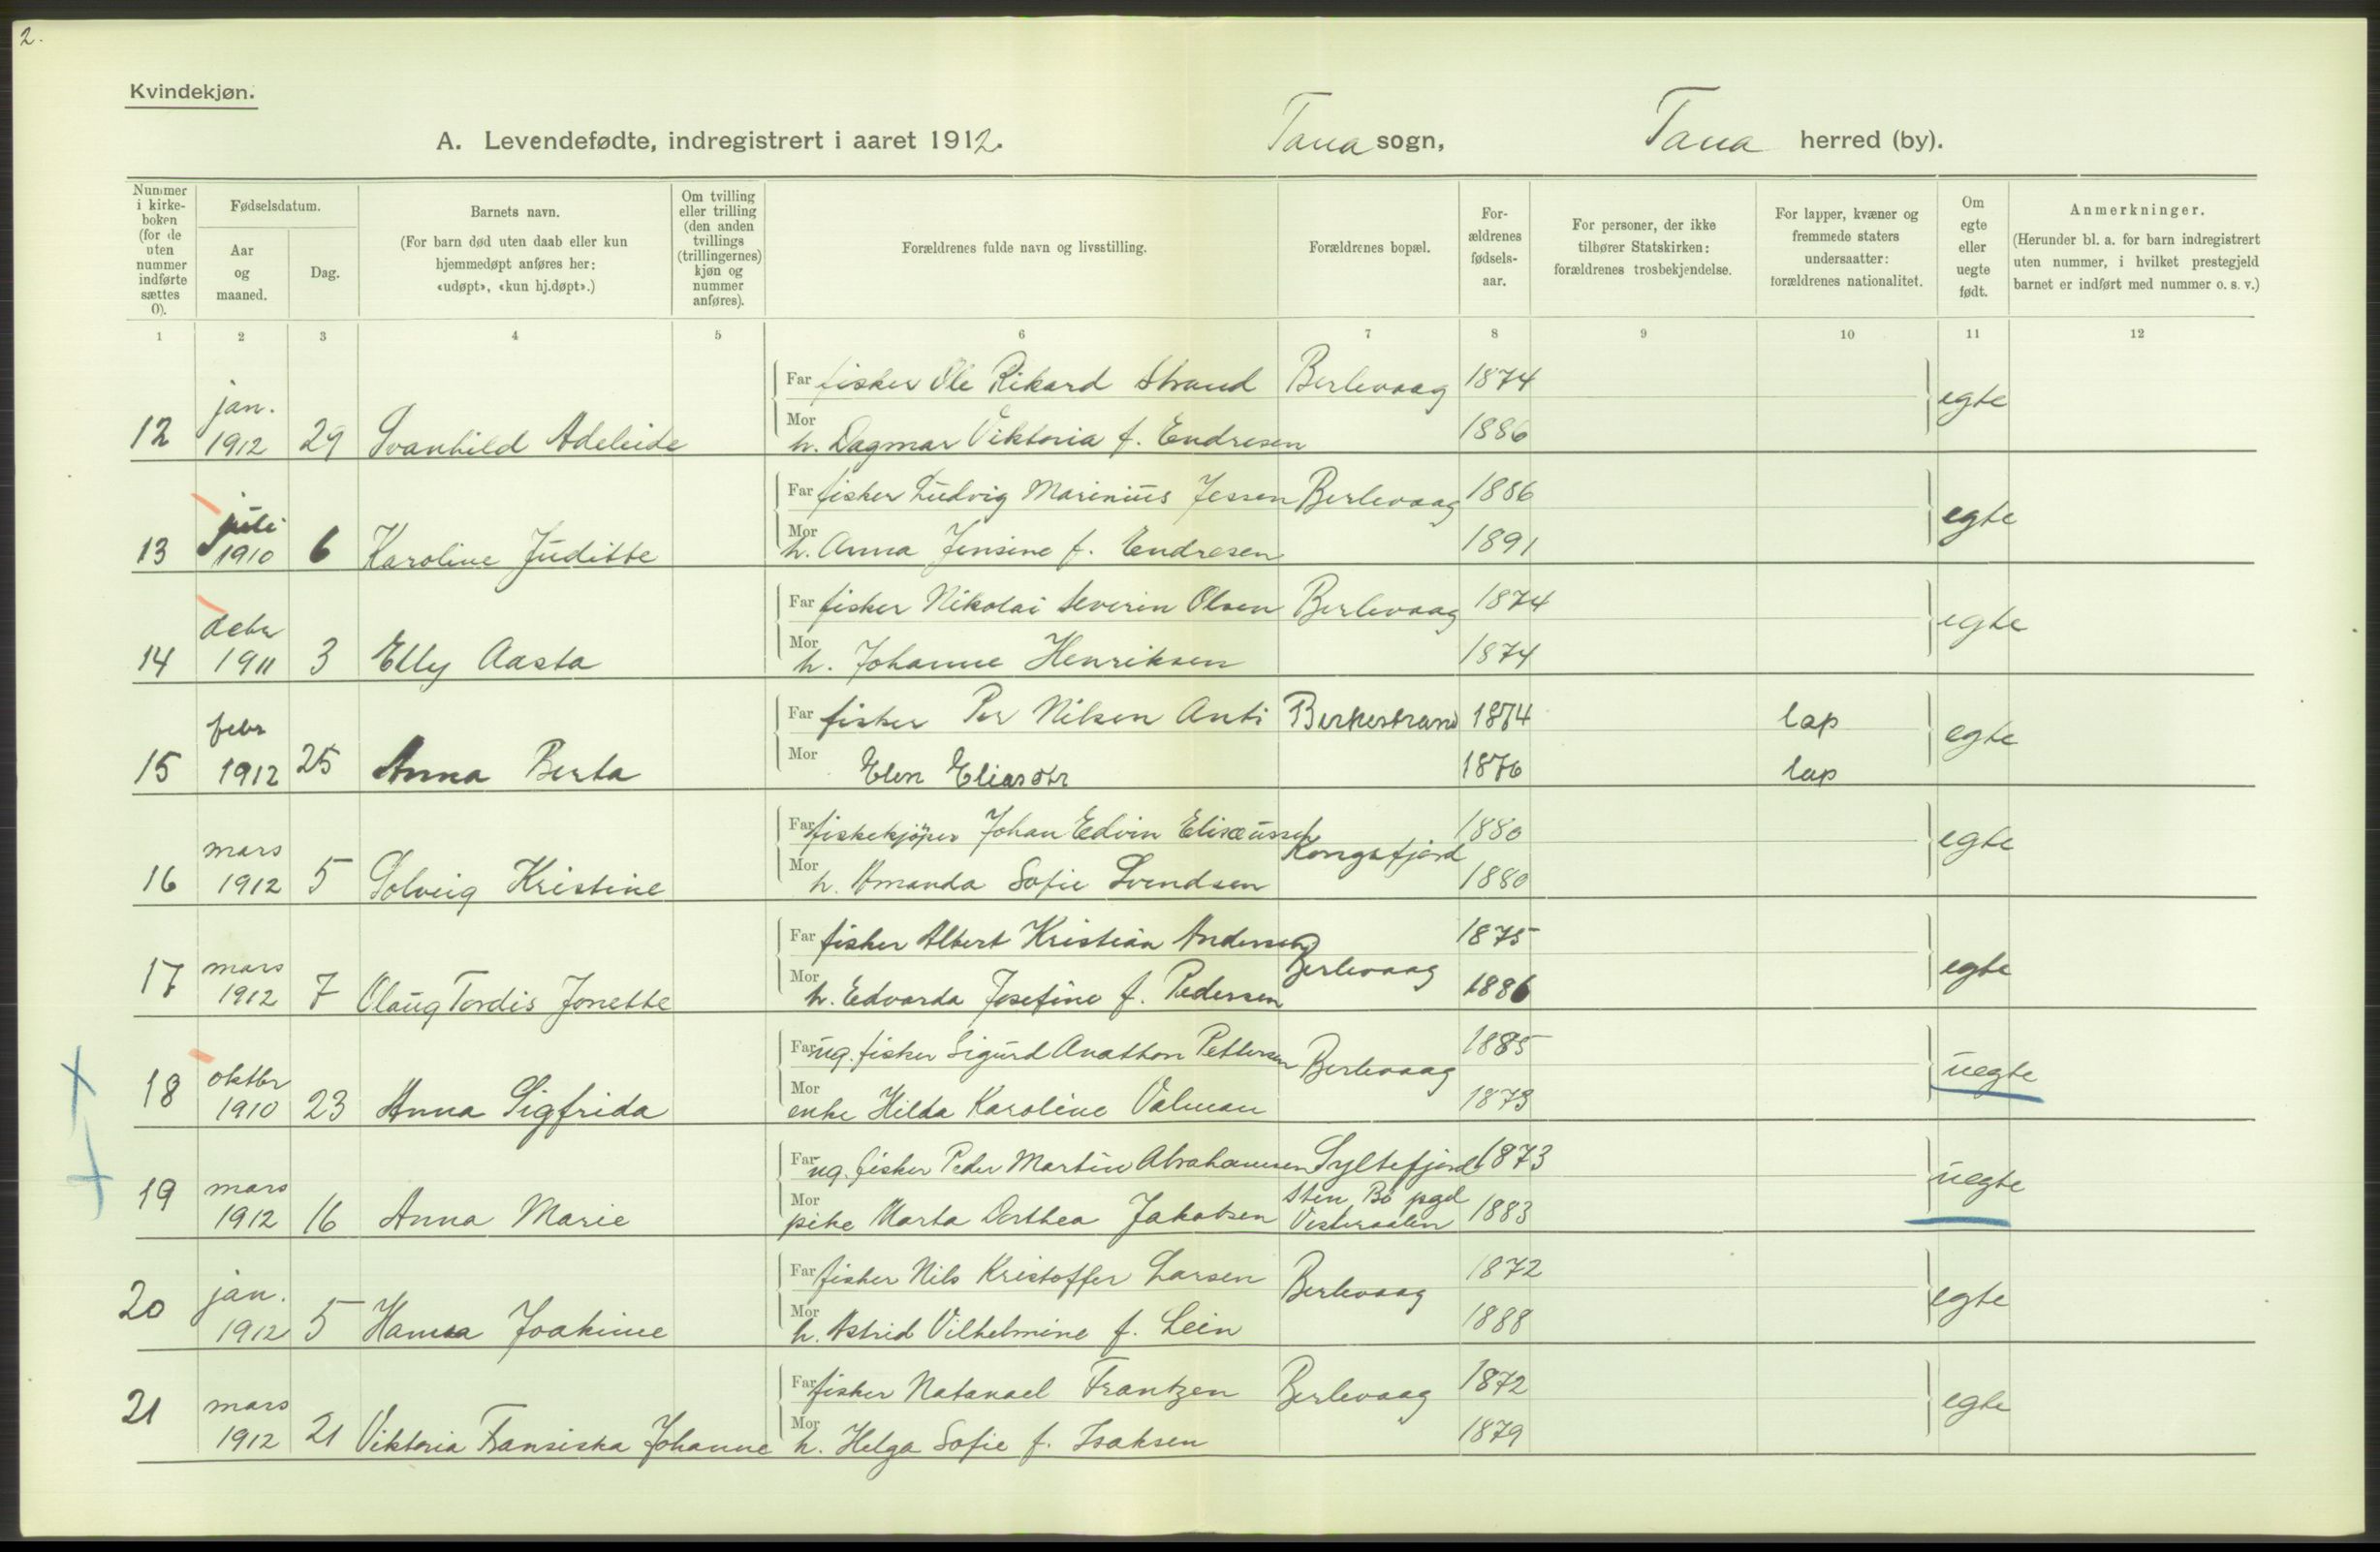 2.
Kvindekjøn.
A. Levendefødte, indregistrert i aaret 1912. Tana sogn, Tana herred (by).
Nummer i kirke-boken (for de uten nummer indførte sættes 0).
Fødselsdatum.
Aar og maaned.
Dag.
Barnets navn.
(For barn død uten daab eller kun hjemmedøpt anføres her: «udøpt», «kun hj.døpt».)
Om tvilling eller trilling (den anden tvillings (trillingernes) kjøn og nummer anføres).
Forældrenes fulde navn og livsstilling.
Forældrenes bopæl.
For-ældrenes fødsels-aar.
For personer, der ikke tilhører Statskirken: forældrenes trosbekjendelse.
For lapper, kvæner og fremmede staters undersaatter: forældrenes nationalitet.
Om egte eller uegte født.
Anmerkninger.
(Herunder bl. a. for barn indregistrert uten nummer, i hvilket prestegjeld barnet er indført med nummer o. s. v.)
1 2 3 4 5 6 7 8 9 10 11 12
jan. Far fisker Ole Rikard Strand Berlevaag 1874 egte
12 1912 29 Svanhild Adeleide Mor h. Dagmar Viktoria f. Endresen 1886
juli Far fisker Ludvig Marinius Jessen Berlevaag 1886 egte
13 1910 6 Karoline Juditte Mor h. Anna Jensine f. Endresen 1891
debr Far fisker Nikolai Severin Olsen Berlevaag 1874 egte
14 1911 3 Elly Aasta Mor h. Johanne Henriksen 1874
febr Far fisker Per Nilsen Anti Birkestrand 1874 lap egte
15 1912 25 Anna Berta Mor Elen Eliasdtr 1876 lap
mars Far fiskekjøper Johan Edvin Elisæussen Kongsfjord 1880 egte
16 1912 5 Solveig Kristine Mor h. Amanda Sofie Svendsen 1880
mars Far fisker Albert Kristian Andersen Berlevaag 1875 egte
17 1912 7 Olaug Tordis Jonette Mor h. Edvarda Josefine f. Pedersen 1886
oktbr Far ug. fisker Sigurd Anathon Pettersen Berlevaag 1885 uegte
18 1910 23 Anna Sigfrida Mor enke Hilda Karoline Valman 1873
mars Far ug. fisker Peder Martin Abrahamsen Syltefjord 1873 uegte
19 1912 16 Anna Marie Mor pike Marta Dorthea Jakobsen Sten, Bø pgd Vesteraalen 1883
jan. Far fisker Nils Kristoffer Larsen Berlevaag 1872 egte
20 1912 5 Hanna Joakime Mor h. Astrid Vilhelmine f. Lein 1888
mars Far fisker Natanael Frantzen Berlevaag 1872 egte
21 1912 21 Viktoria Fransiska Johanne Mor h. Helga Sofie f. Isaksen 1879